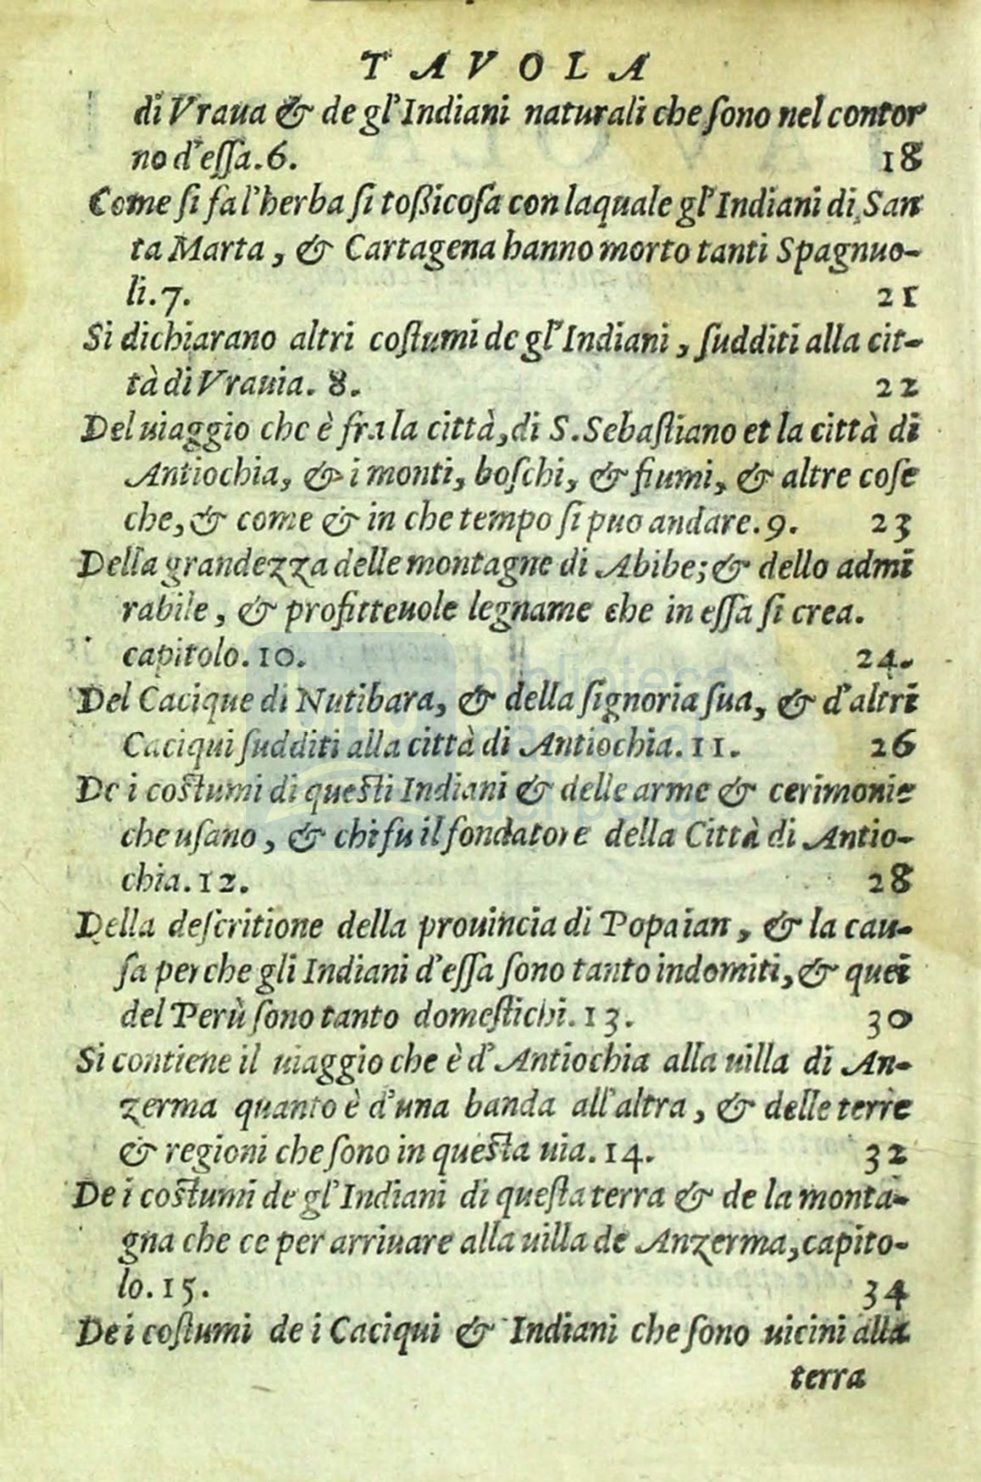 TAVOLA
di Vraua & de gl'Indiani naturali che ſono nel contor
no d'eſſa.6. 18
Come ſi fa l'herba ſi toßicoſa con laquale gl'Indiani di San
ta Marta, & Cartagena hanno morto tanti Spagnuo-
li.7. 21
Si dichiarano altri coſtumi de gl'Indiani, ſudditi alla cit-
tà di Vrauia. 8. 22
Del uiaggio che è fra la città, di S. Sebaſtiano et la città di
Antiochia, & i monti, boſchi, & fiumi, & altre coſe
che, & come & in che tempo ſi puo andare.9. 23
Della grandezza delle montagne di Abibe; & dello admi
rabile, & profitteuole legname che in eſſa ſi crea.
capitolo.10. 24.
Del Cacique di Nutibara, & della ſignoria ſua, & d'altri
Caciqui ſudditi alla città di Antiochia.11. 26
De i coſtumi di queſti Indiani & delle arme & cerimonie
che uſano, & chi fu il fondatore della Città di Antio-
chia.12. 28
Della deſcritione della prouincia di Popaian, & la cau-
ſa perche gli Indiani d'eſſa ſono tanto indomiti, & quei
del Perù ſono tanto domeſtichi.13. 30
Si contiene il uiaggio che è d'Antiochia alla uilla di An-
zerma quanto è d'una banda all'altra, & delle terre
& regioni che ſono in queſta uia.14. 32
De i coſtumi de gl'Indiani di queſta terra & de la monta-
gna che ce per arriuare alla uilla de Anzerma, capito-
lo.15. 34
De i coſtumi de i Caciqui & Indiani che ſono uicini alla
terra
biblioteca